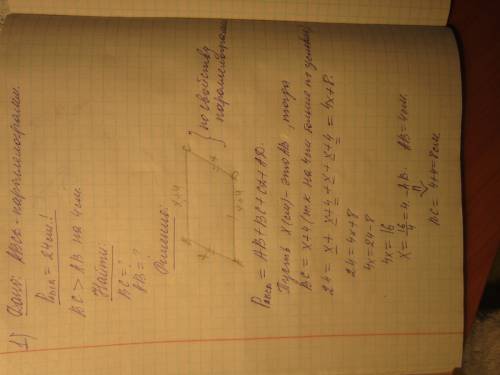 1) Дано: ABCD - параллелограмм.
Pавсд = 24см.
BC > AB на 4см.
Найти:
BC = ?
AB = ?
Решение:
x+4
x
x+4
} по свойству
параллелограмма
Pавсд = AB + BC + CD + AD.
Пусть x(см) - это AB, тогда
BC = x+4 (т.к на 4см больше по условию)
24 = x + x+4 + x + x+4 = 4x+8.
24 = 4x+8
4x = 24-8
4x = 16
x = 16/4 = 4. AB. AB = 4см.
BC = 4+4 = 8см